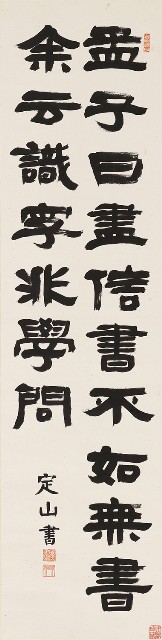 孟子曰盡信書不如無書
余云識字非學問
定山書